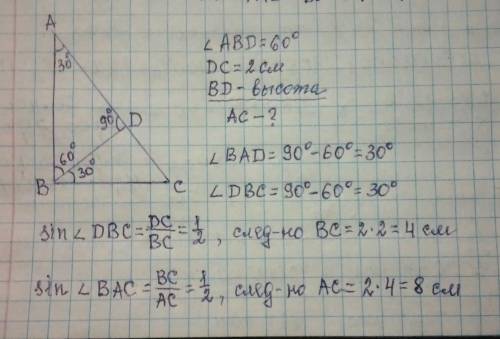 A
30°
90°
D
60°
30°
B
C
∠ABD=60°
DC=2см
BD-высота
AC-?
∠BAD=90°-60°=30°
∠DBC=90°-60°=30°
sin∠DBC=DC/BC=1/2, след-но BC=2·2=4 см
sin∠BAC=BC/AC=1/2, след-но AC=2·4=8 см